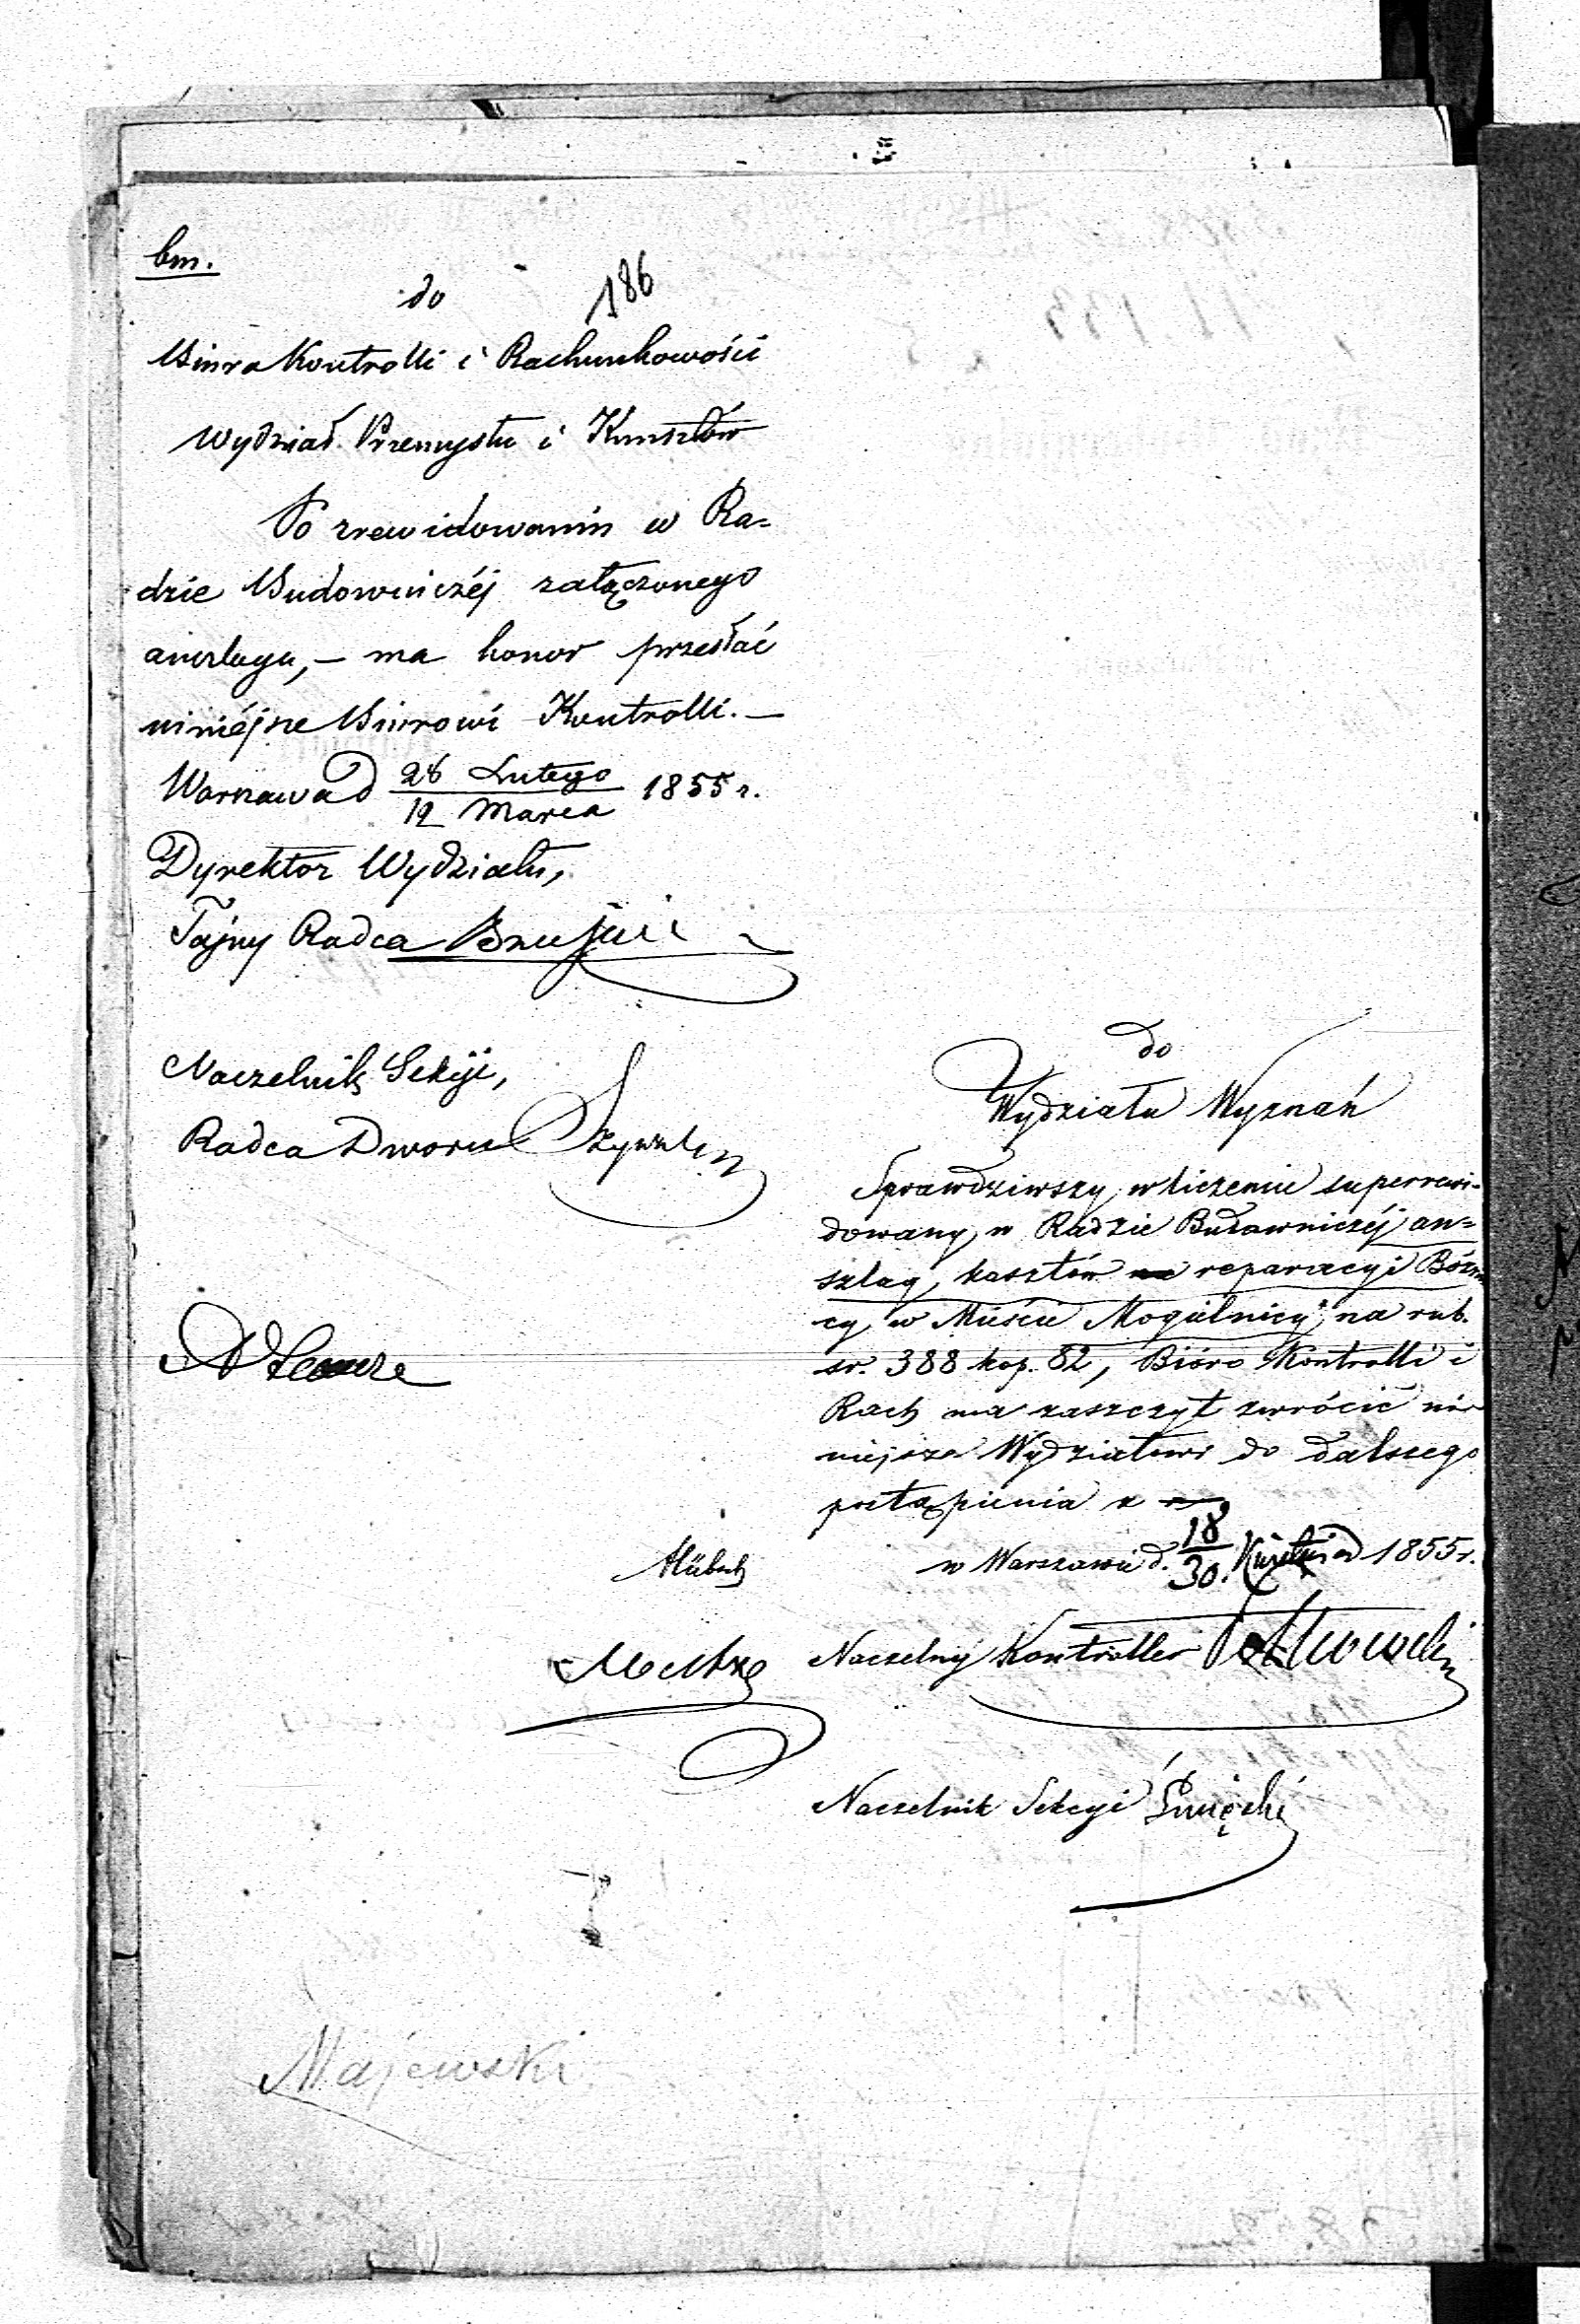 bm.
do
186
Biura Kontrolli i Rachunkowości
Wydział Przemysłu i Kunsztów
Po zrewidowaniu w Ra=
dzie Budowniczéj załączonego
anszlagu, – ma honor przesłać
niniéjsze Biurowi Kontrolli. –
Warszawa d 28 Lutego / 12 Marca 1855 r.
Dyrektor Wydziału,
Tajny Radca
Naczelnik Sekcji,
Radca Dworu
do
Wydziału Wyznań
Sprawdziwszy w liczeniu superrewi-
dowany w Radzie Budowniczéj an=
szlag, kosztów reparacyi Bóżni
cy w Mieście Mogielnicy na rub.
sr. 388 kop. 82, Bióro Kontrolli i
Rach ma zaszczyt zwrócić ni-
niejsze Wydziałowi do dalszego
postąpienia
w Warszawie d. 18/30. Kwietnia 1855 r.
Naczelny Kontroller
Naczelnik Sekcyi
Majewski